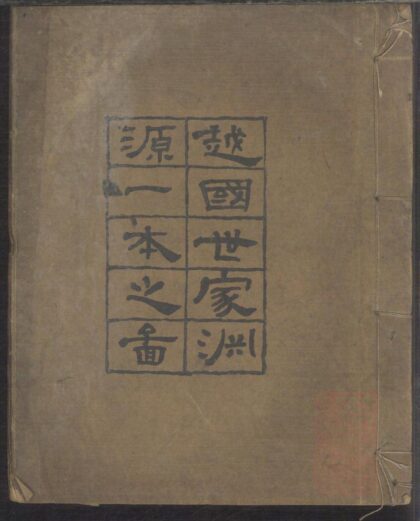 越國世家渊
源一本之圖